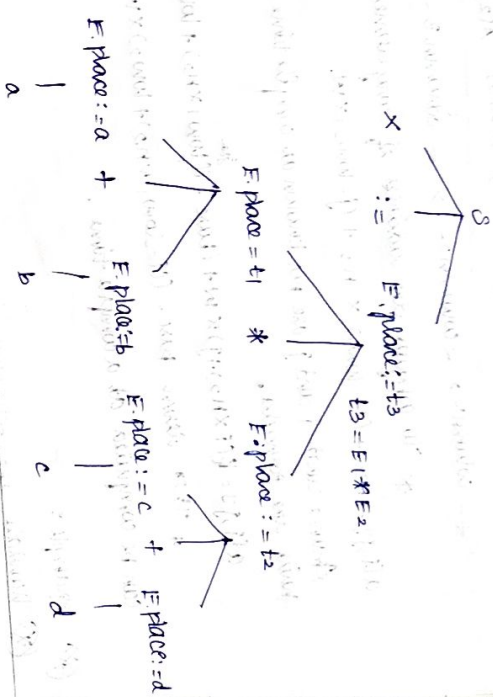 S
x := E.place:=t3
t3 = E1 * E2
E.place = t1 * E.place := t2
E.place:=a + E.place:=b E.place:=c + E.place:=d
a b c d